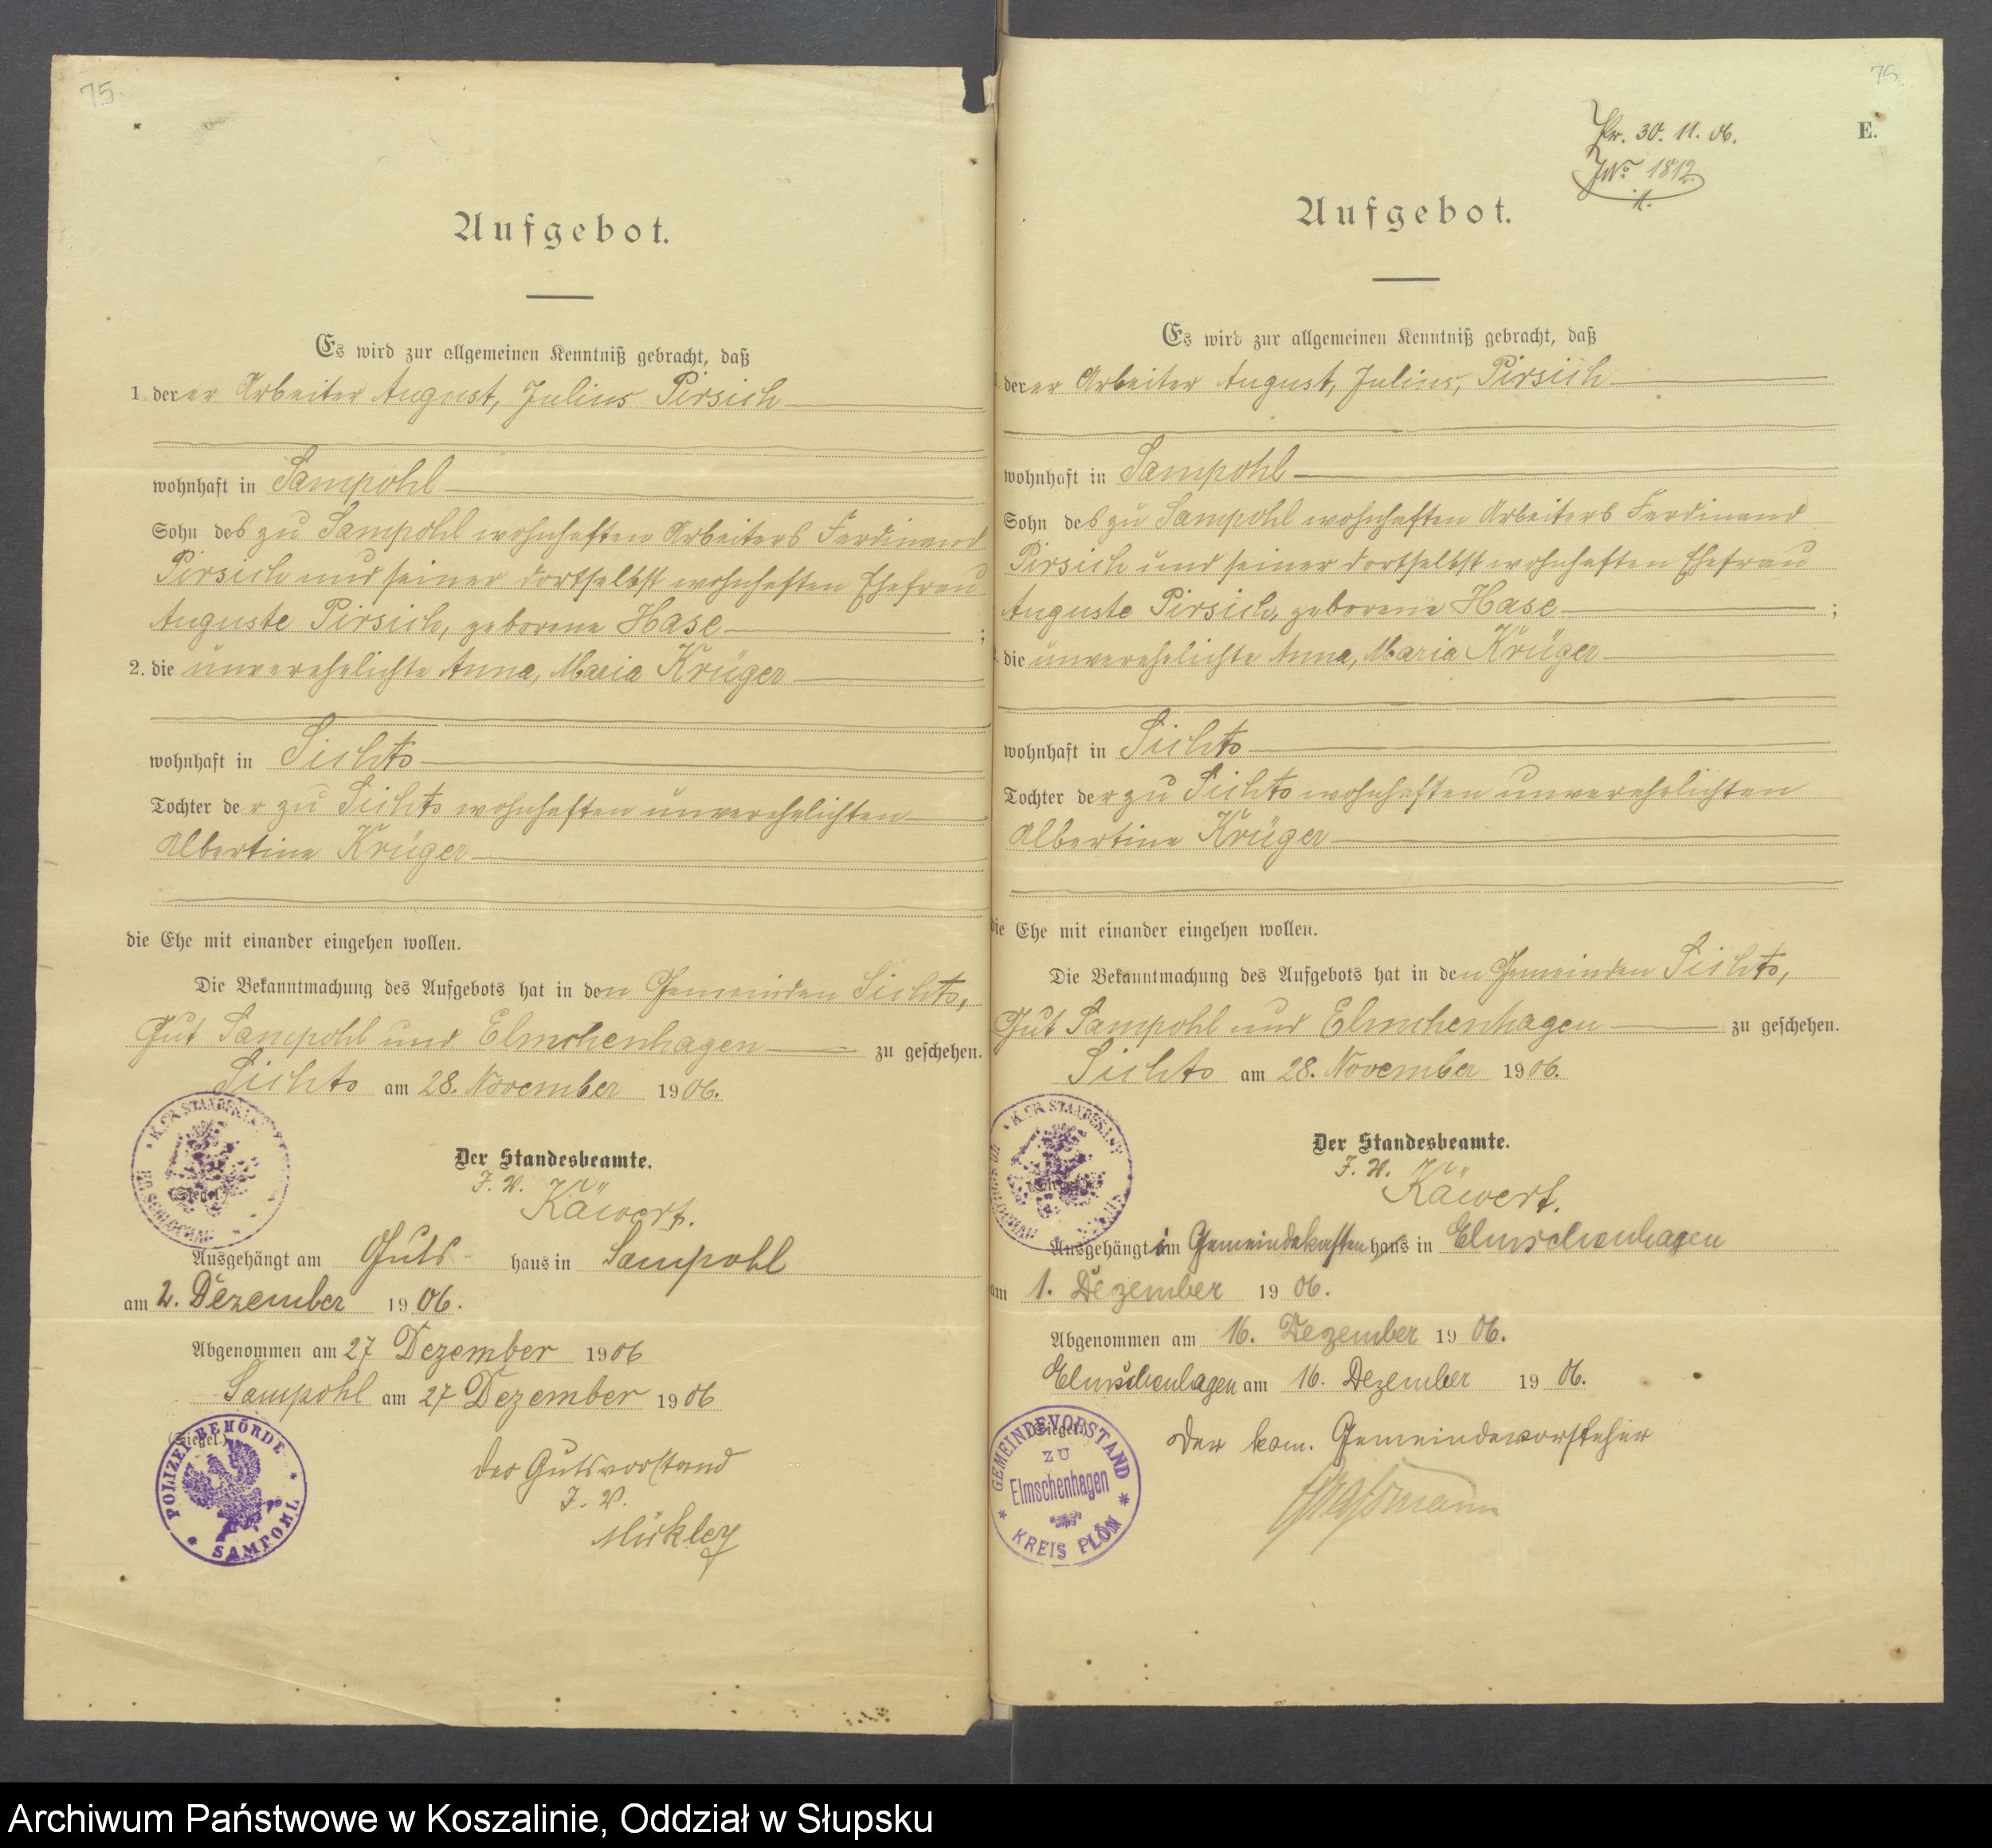 75.
Aufgebot.
Es wird zur allgemeinen Kenntniß gebracht, daß
1. der er Arbeiter August, Julius Pirsich
wohnhaft in Sampohl
Sohn des zu Sampohl wohnhaften Arbeiters Ferdinand
Pirsich und seiner dortselbst wohnhaften Ehefrau
Auguste Pirsich, geborene Hase ;
2. die unverehelichte Anna, Maria Krüger
wohnhaft in Sichts
Tochter der zu Sichts wohnhaften unverehelichten
Albertine Krüger
die Ehe mit einander eingehen wollen.
Die Bekanntmachung des Aufgebots hat in den Gemeinden Sichts,
Gut Sampohl und Elmschenhagen zu geschehen.
Sichts am 28. November 1906.
Der Standesbeamte.
(Siegel.)
J. V.
Käwert.
Ausgehängt am Guts- haus in Sampohl
am 2. Dezember 1906.
Abgenommen am 27 Dezember 1906
Sampohl am 27 Dezember 1906
(Siegel.)
POLIZEI-BEHÖRDE * SAMPOHL *
Der Gutsvorstand
J. V.
76.
E.
Pr. 30. 11. 06.
JNo 1812.
Aufgebot.
Es wird zur allgemeinen Kenntniß gebracht, daß
der er Arbeiter August, Julius, Pirsich
wohnhaft in Sampohl
Sohn des zu Sampohl wohnhaften Arbeiters Ferdinand
Pirsich und seiner dortselbst wohnhaften Ehefrau
Auguste Pirsich, geborene Hase ;
die unverehelichte Anna, Maria Krüger
wohnhaft in Sichts
Tochter der zu Sichts wohnhaften unverehelichten
Albertine Krüger
die Ehe mit einander eingehen wollen.
Die Bekanntmachung des Aufgebots hat in den Gemeinden Sichts,
Gut Sampohl und Elmschenhagen zu geschehen.
Sichts am 28. November 1906.
Der Standesbeamte.
J. V.
Käwert.
Ausgehängt im Gemeindekasten haus in Elmschenhagen
am 1. Dezember 1906.
Abgenommen am 16. Dezember 1906.
Elmschenhagen am 16. Dezember 1906.
(Siegel.)
GEMEINDEVORSTAND ZU Elmschenhagen * KREIS PLÖN *
Der kom. Gemeindevorsteher
Archiwum Państwowe w Koszalinie, Oddział w Słupsku